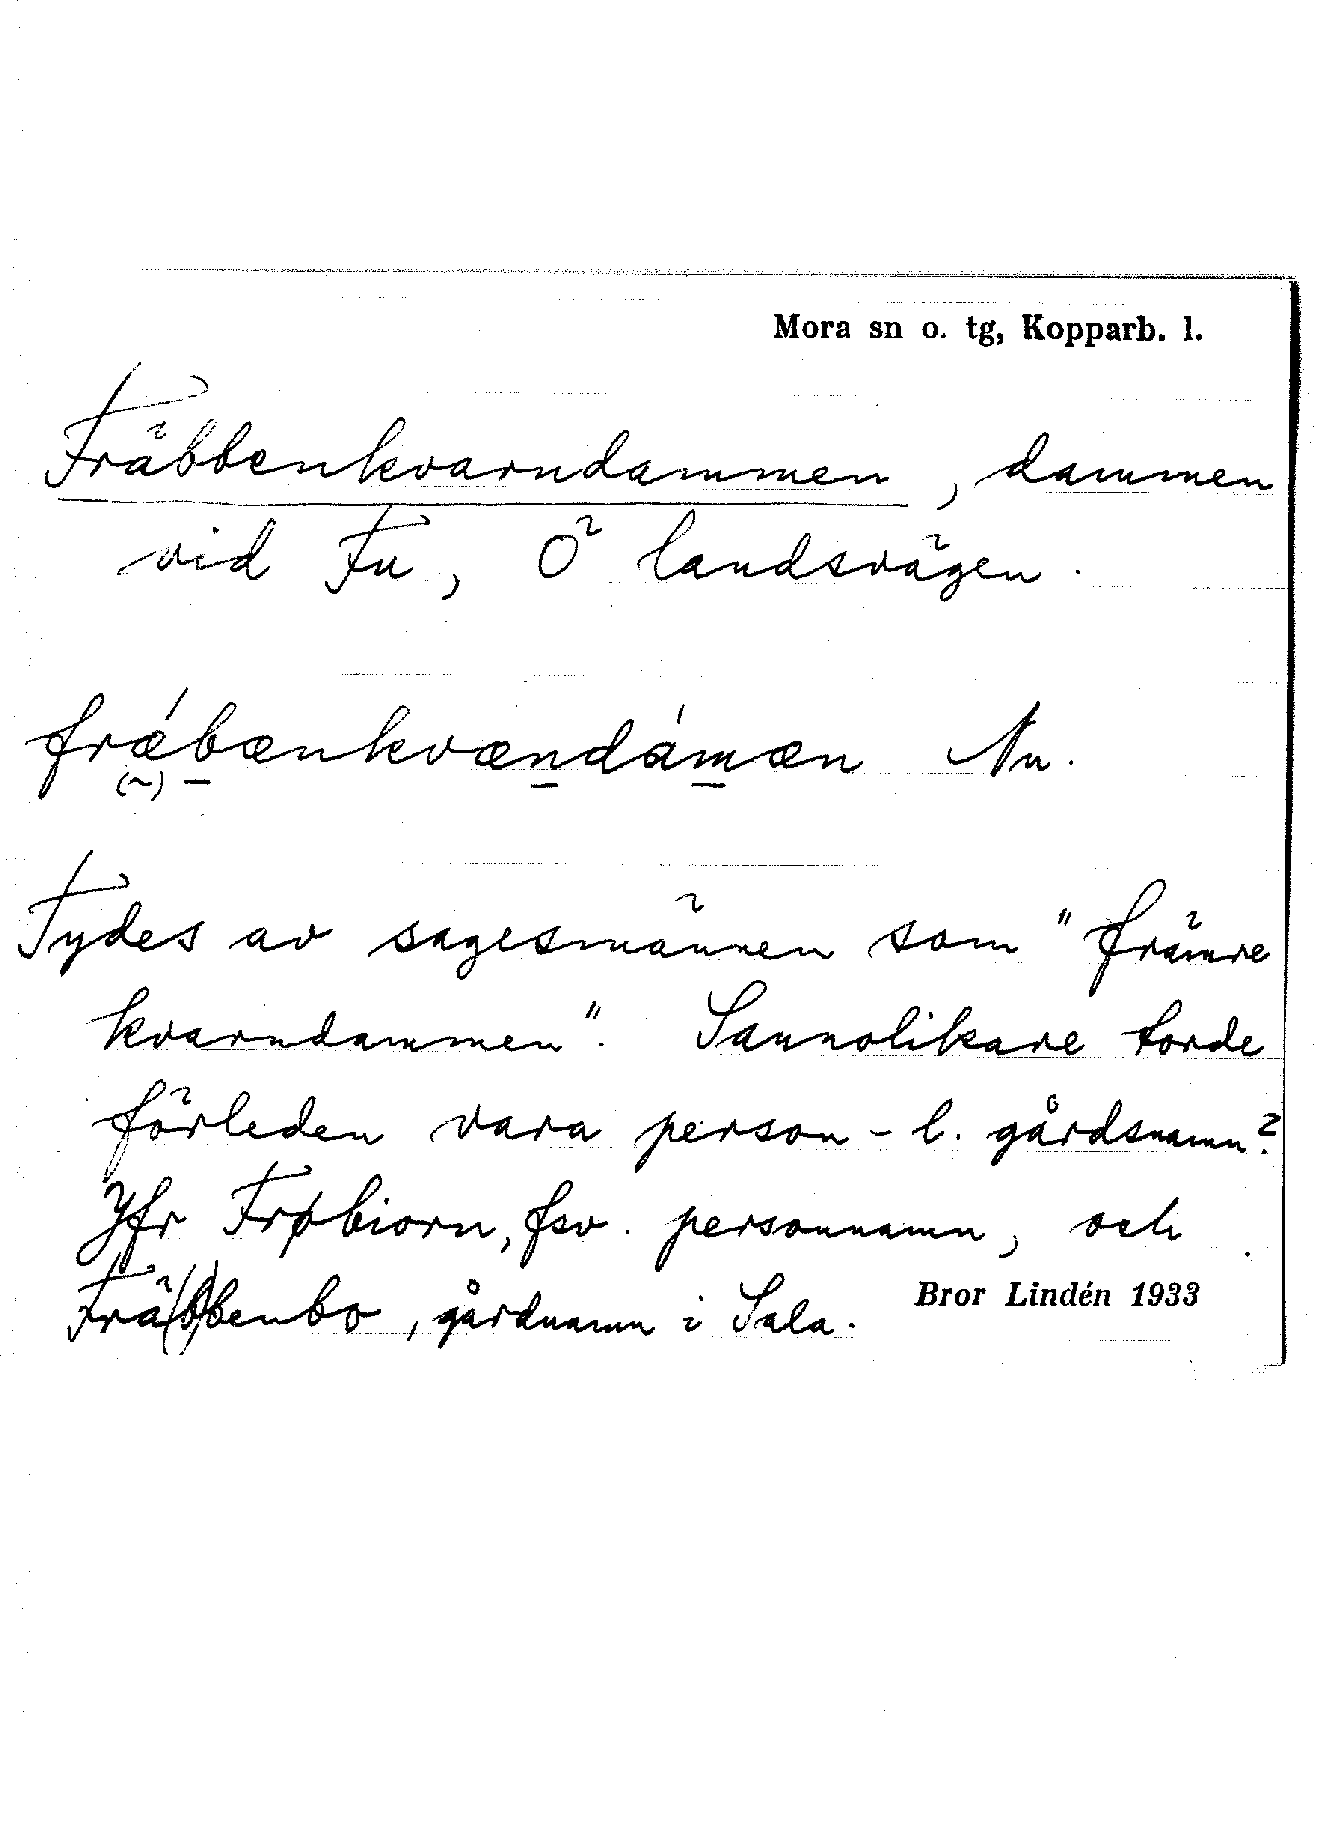 Mora sn o. tg, Kopparb. l.
Fräbbenkvarndammen, dammen
vid Fu, Ö landsvägen.
frǽbænkvændámæn Nu.
(~)
Tydes av sagesmännen som "främre
kvarndammen". Sannolikare torde
förleden vara person- l. gårdsnamn?
Jfr Frøbiorn, fsv. personnamn, och
Frä(b)benbo, gårdnamn i Sala.
Bror Lindén 1933